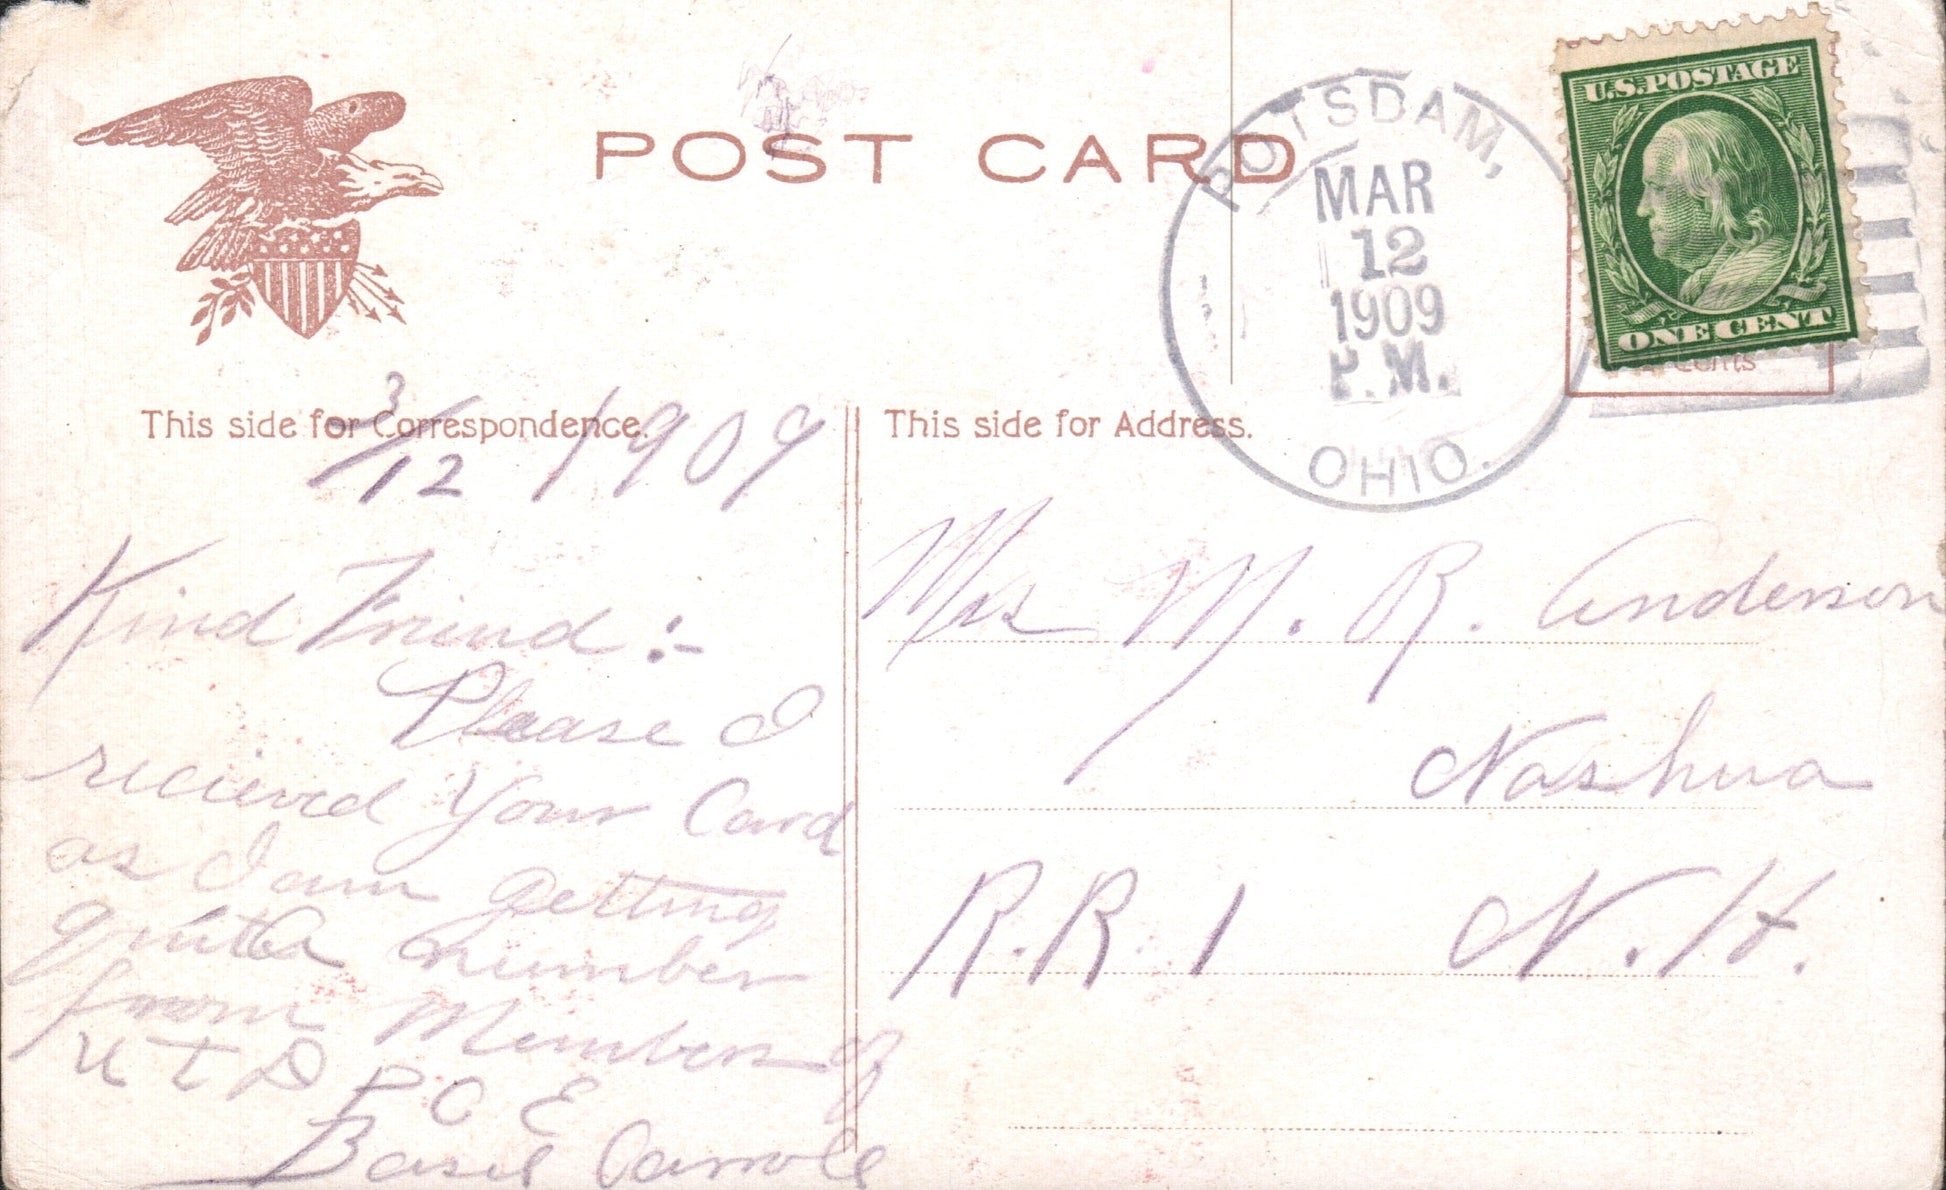 POST CARD
POTSDAM,
MAR
12
1909
P.M.
OHIO.
U.S.POSTAGE
ONE CENT
Cents
This side for Correspondence.
This side for Address.
3/12 1909
Kind Friend :-
Please I
recieved Your Card
as I am getting
quite a number
from Members of
U T D P C E
Basil Carroll
Mrs M. R. Anderson
Nashua
R.R. 1 N.H.